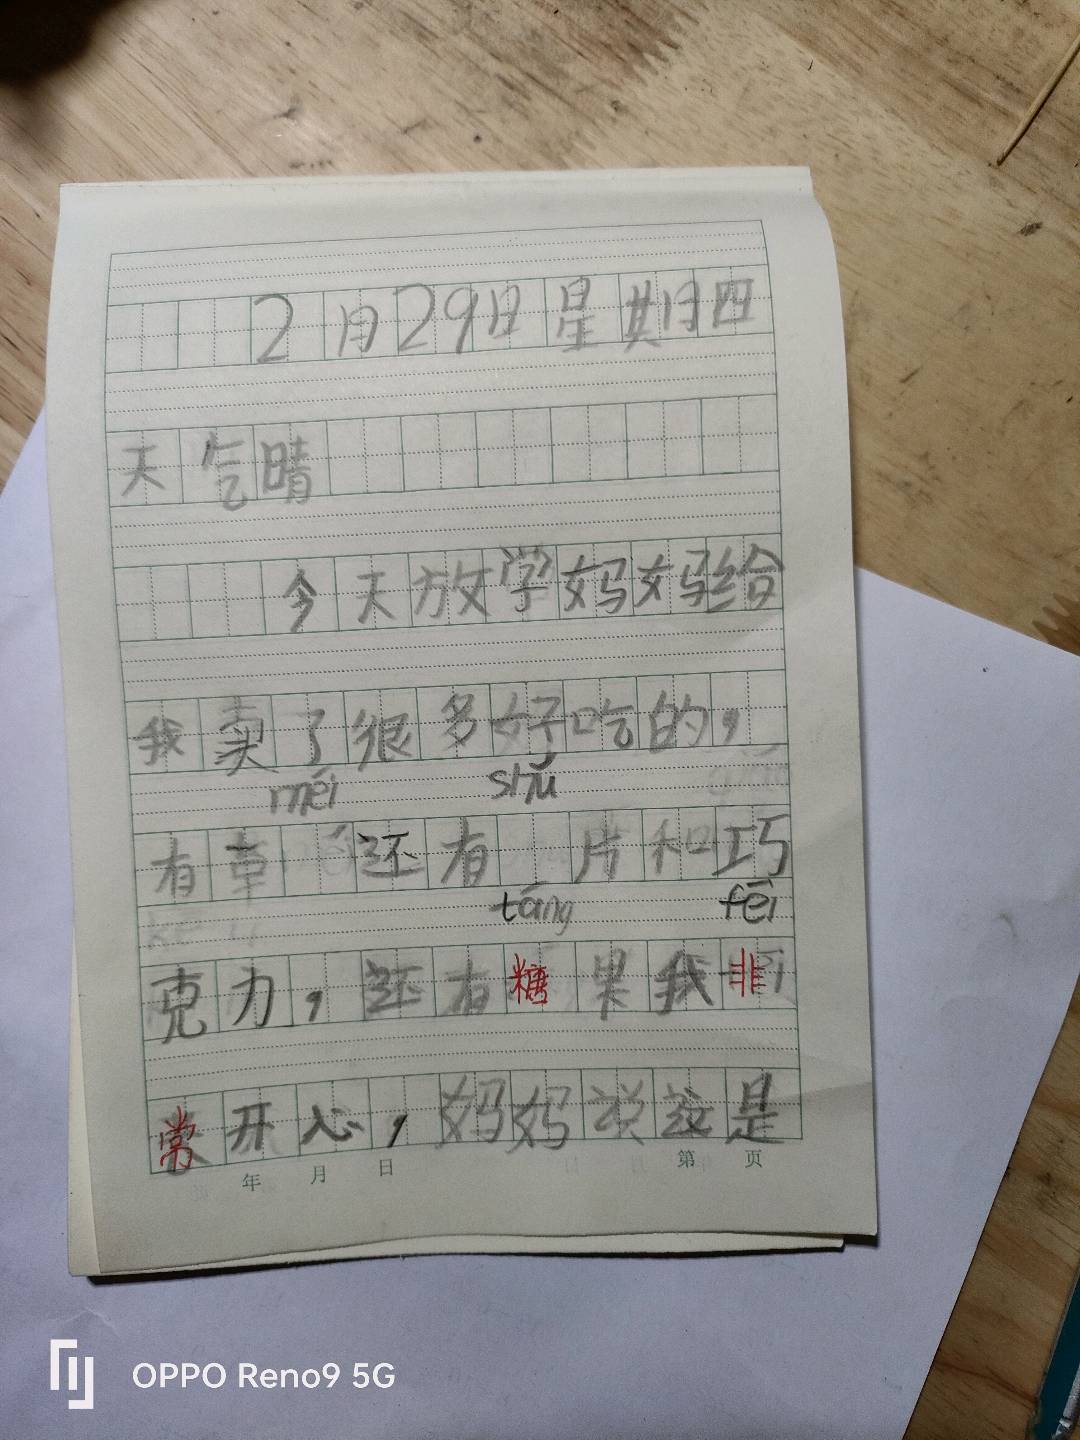 2月29日星期四
天气晴
今天放学妈妈给
我卖了很多好吃的，
méi shǔ
有草 还有 片和巧
táng fēi
克力，还有糖果我非
常开心，妈妈说这是
年 月 日 第 页
OPPO Reno9 5G